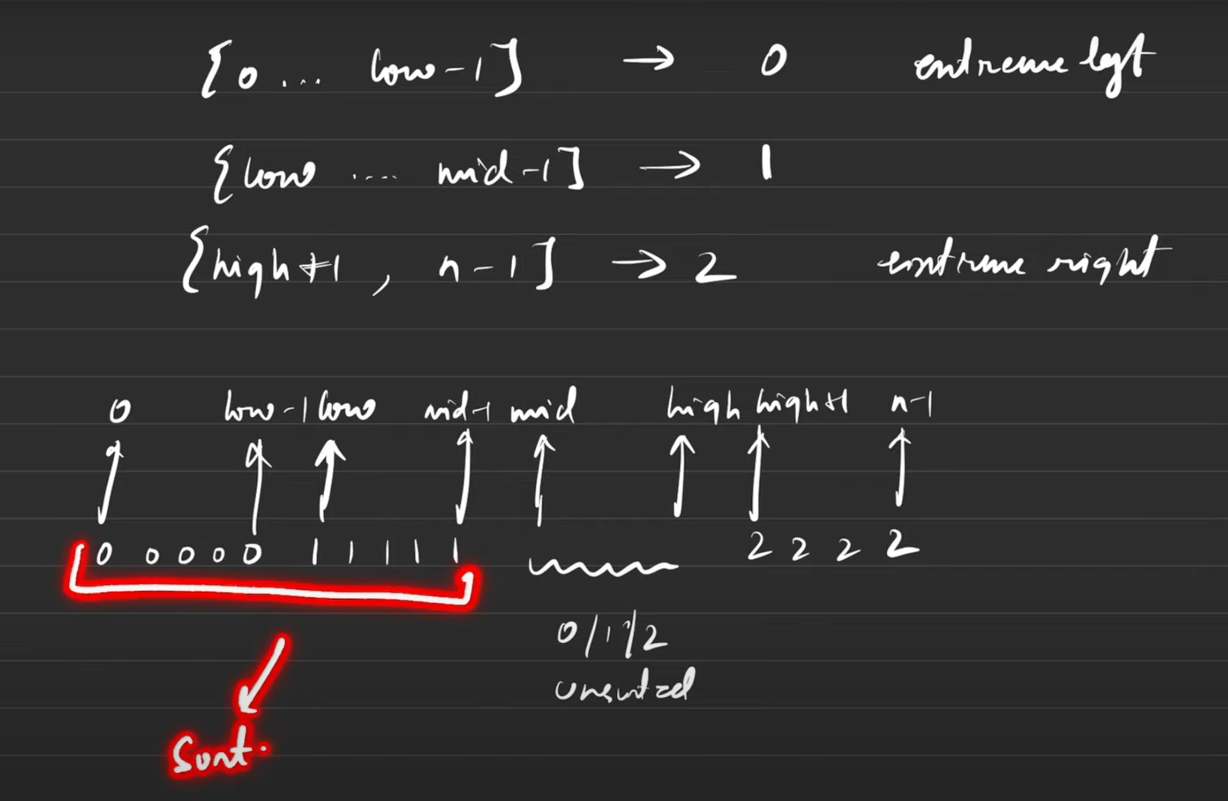 [0 ... low-1] → 0 extreme left
[low .... mid-1] → 1
[high+1, n-1] → 2 extreme right
0 low-1 low mid-1 mid high high+1 n-1
0 0 0 0 0 1 1 1 1 1 2 2 2 2
0/1/2
unsorted
Sort.